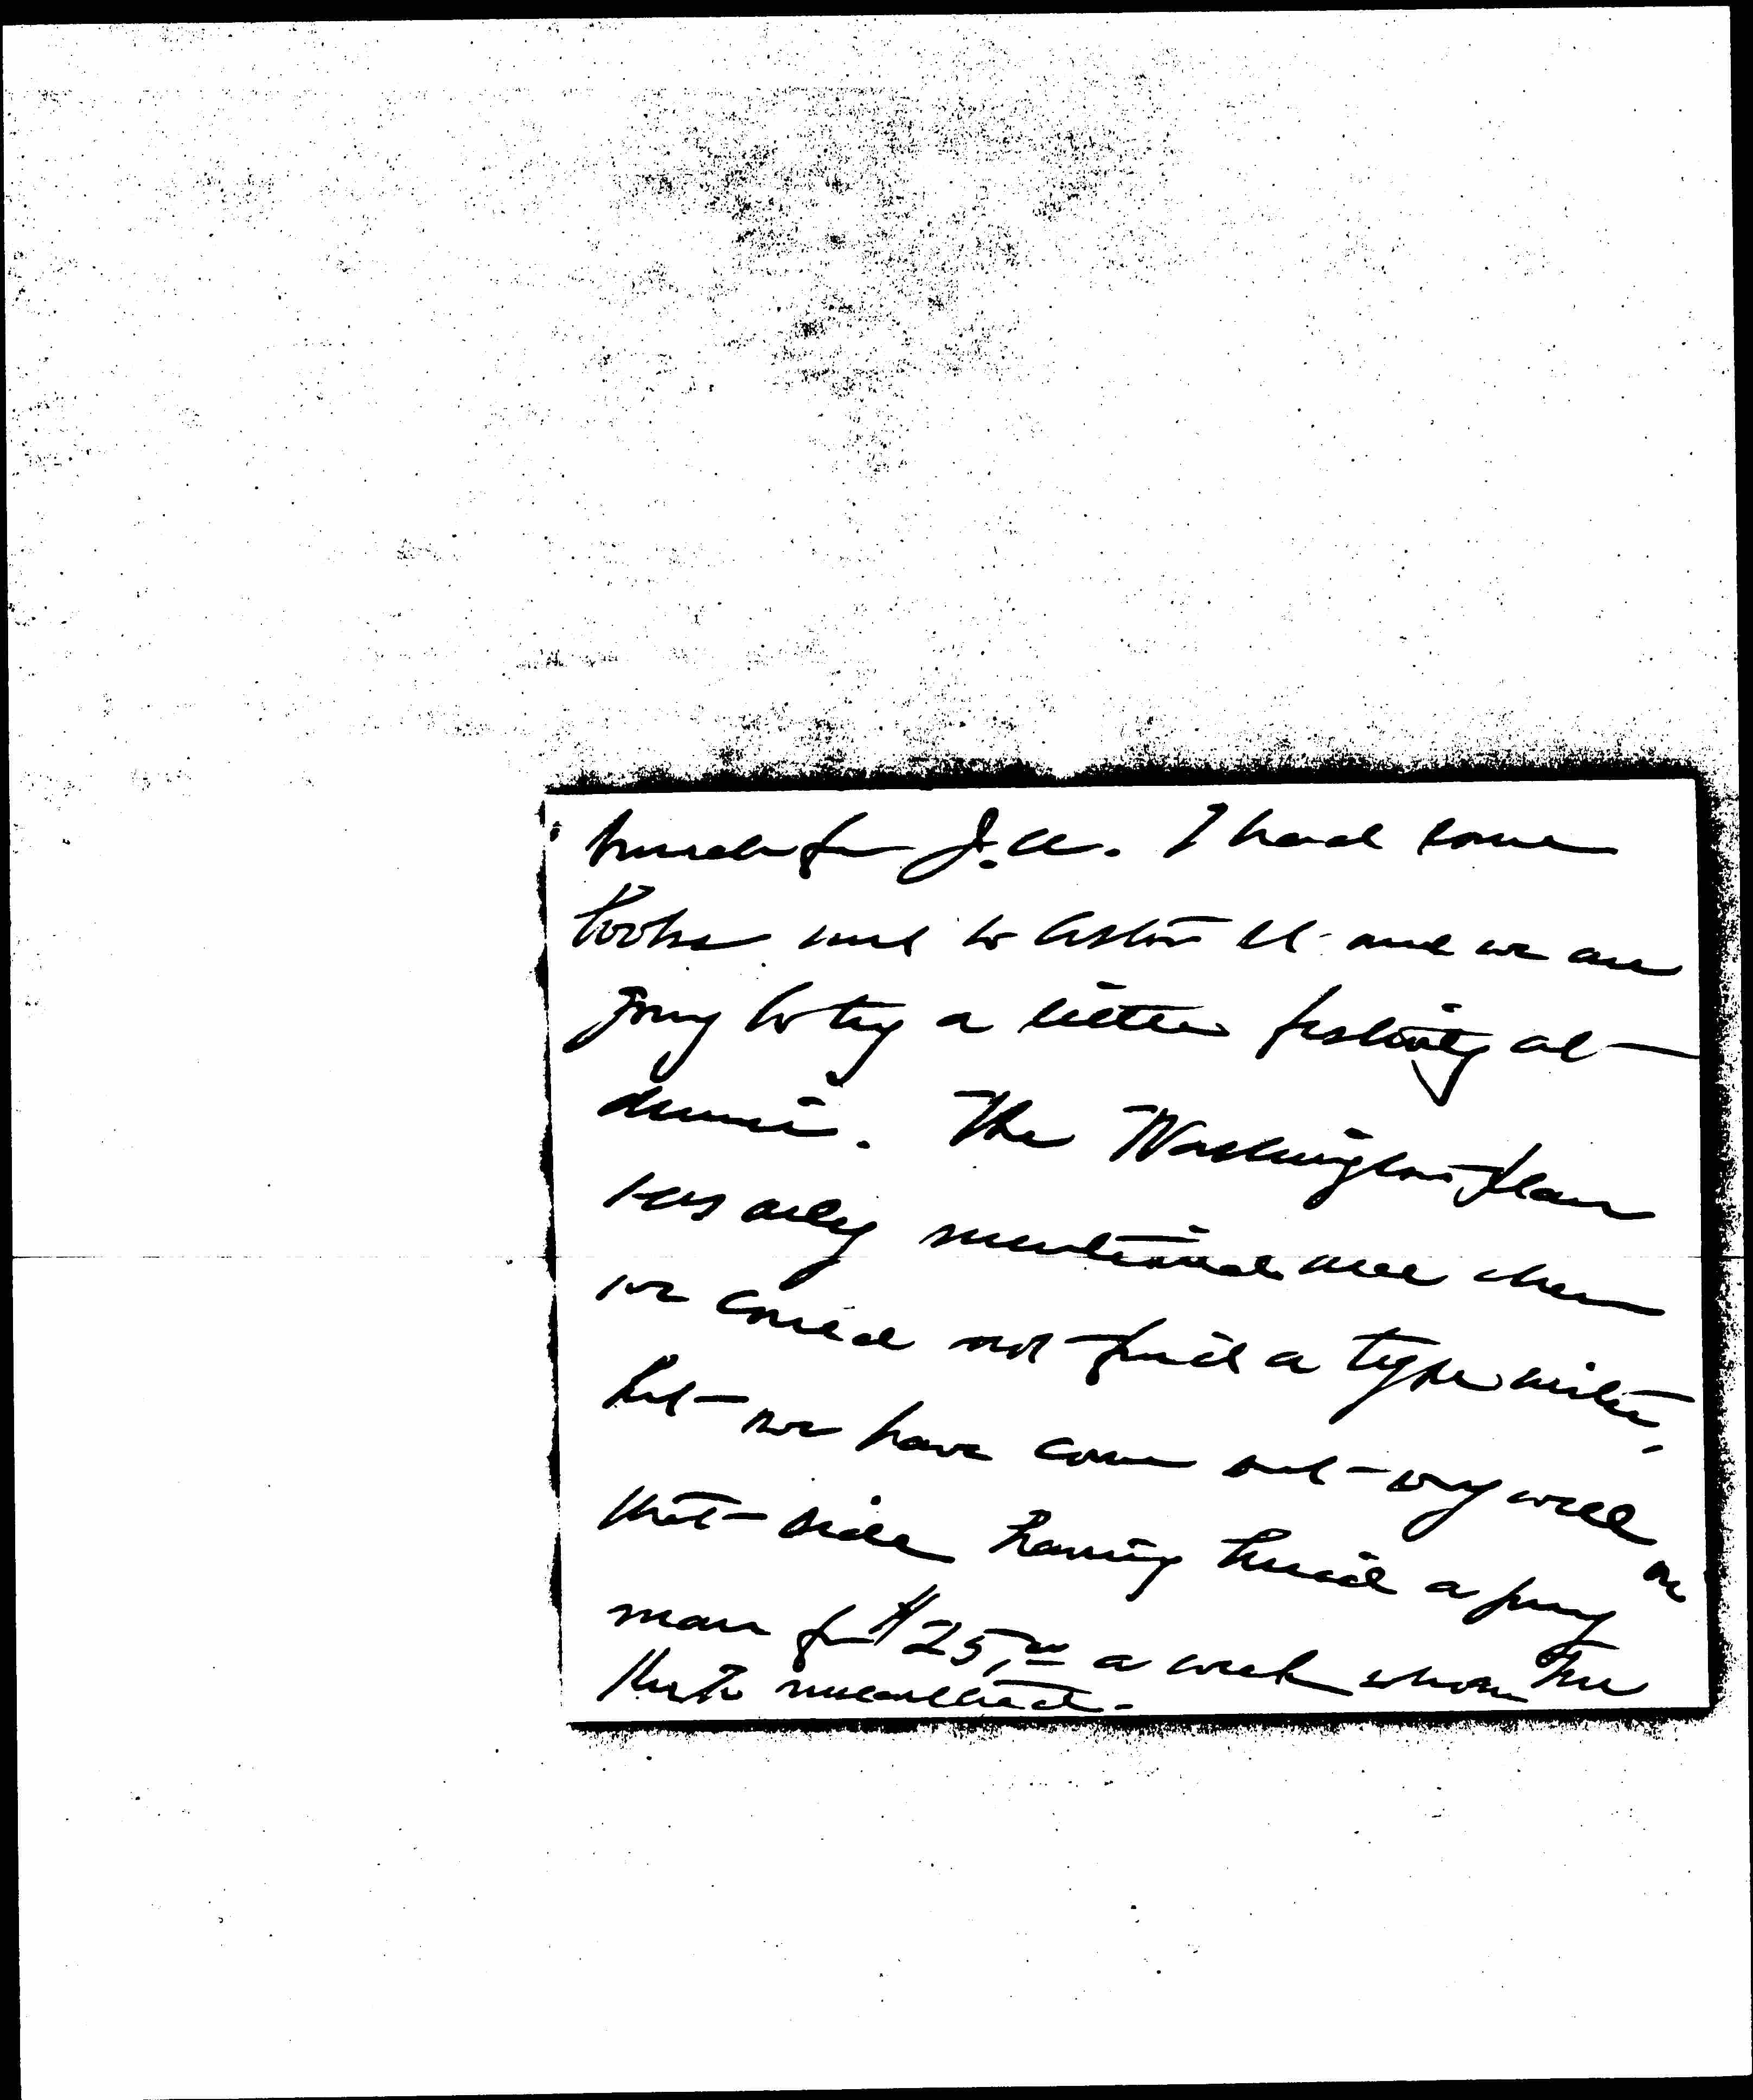 much for J.A. I had some
books sent to Aston Cl. and we are
going to try a little festivity at
dinner. The Washington plan
was only mentioned me when
we could not find a typewriter,
but we have come out very well on
that side having hired a young
man for $25,00 a week whom